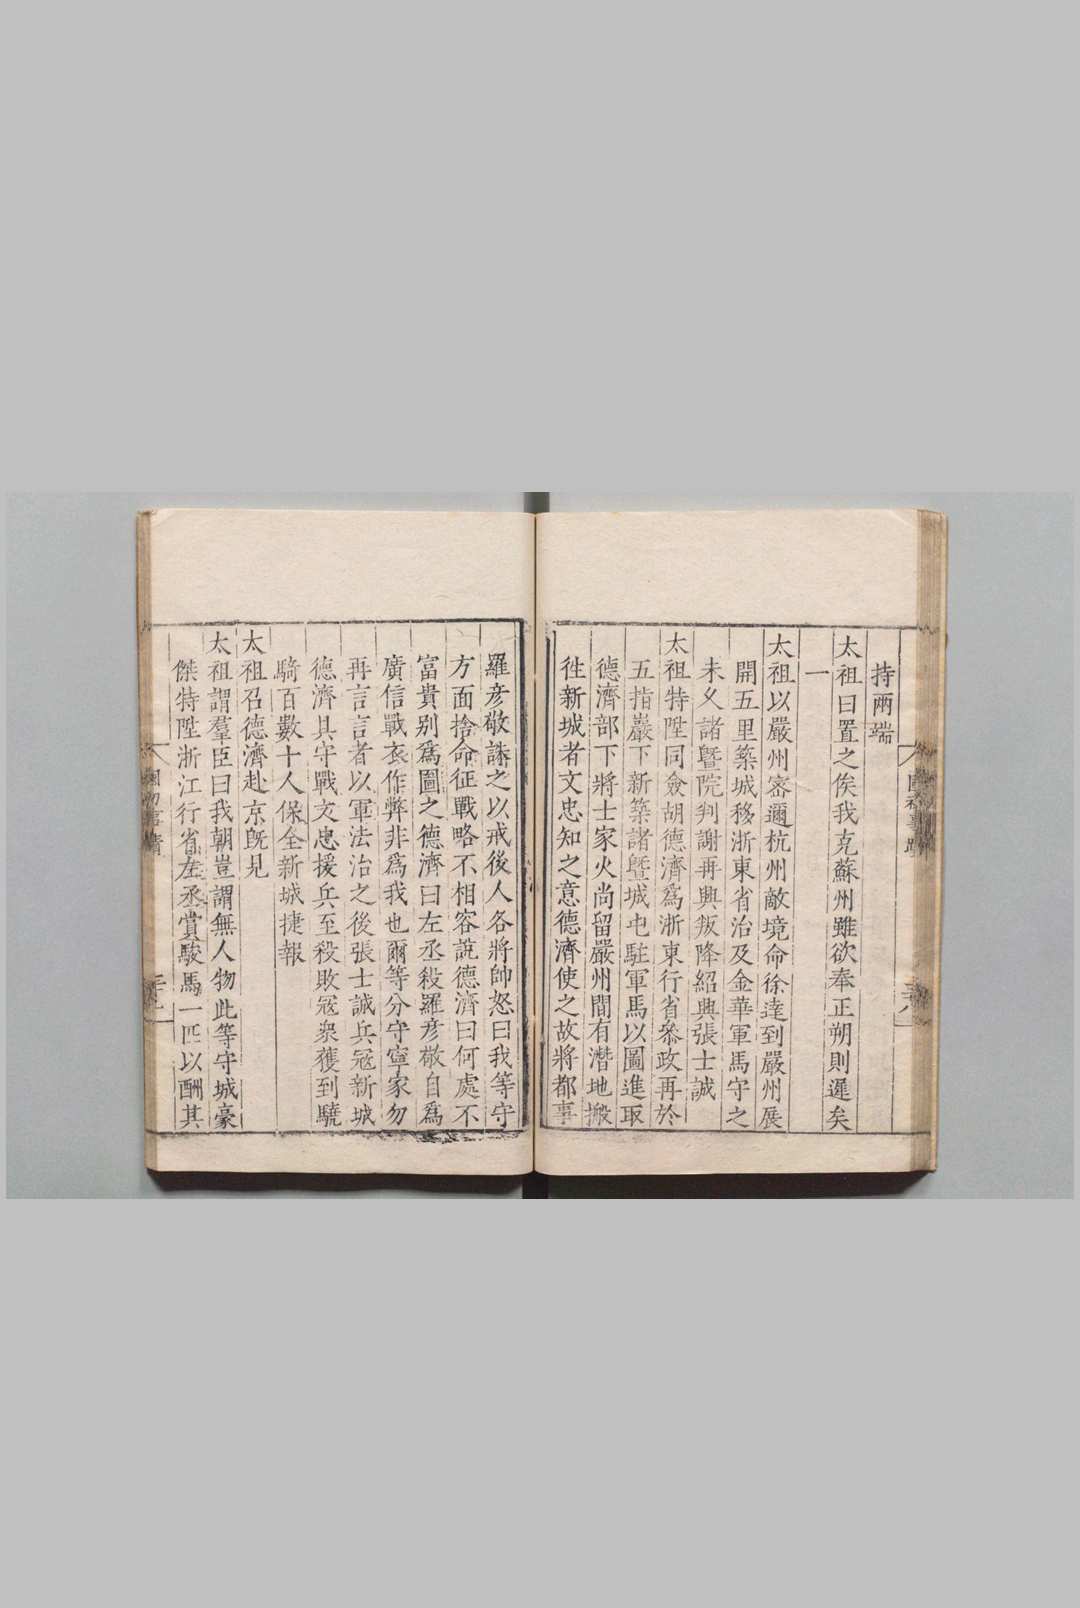 持兩端
太祖曰置之俟我克蘇州雖欲奉正朔則遲矣
一
太祖以嚴州密邇杭州敵境命徐達到嚴州展
開五里築城移浙東省治及金華軍馬守之
未乆諸曁院判謝再興叛降紹興張士誠
太祖特陞同僉胡德濟爲浙東行省叅政再於
五指巖下新築諸曁城屯駐軍馬以圖進取
德濟部下將士家火尚留嚴州間有潛地搬
徃新城者文忠知之意德濟使之故將都事
羅彦敬誅之以戒後人各將帥怒曰我等守
方面捨命征戰略不相容説德濟曰何處不
富貴别爲圖之德濟曰左丞殺羅彦敬自爲
廣信戰衣作弊非爲我也爾等分守寧家勿
再言言者以軍法治之後張士誠兵冦新城
德濟具守戰文忠援兵至殺敗冦衆獲到驍
騎百數十人保全新城捷報
太祖召德濟赴京旣見
太祖謂羣臣曰我朝豈謂無人物此等守城豪
傑特陞浙江行省左丞賞駿馬一匹以酬其